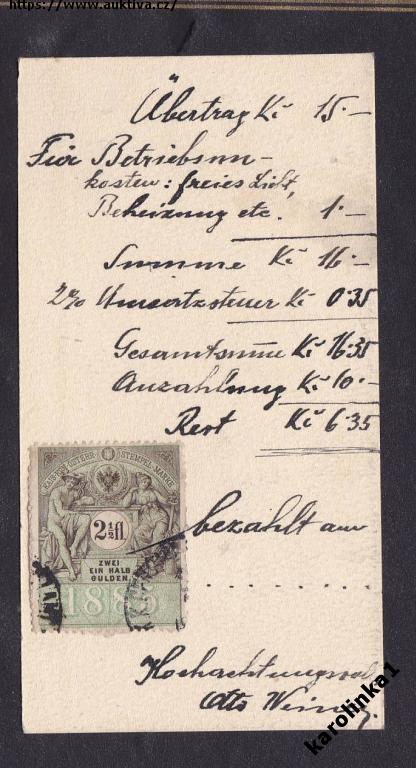 https://www.auktiva.cz/
Übertrag Kč 15.–
Für Betriebsun-
kosten: freies Licht,
Beheizung etc. 1.–
Summe Kč 16.–
2% Umsatzsteuer Kč 0·35
Gesamtsumme Kč 16·35
Anzahlung Kč 10.–
Rest Kč 6·35
KAIS. KÖN. ÖSTERR. STEMPEL-MARKE
2½ fl.
ZWEI
EIN HALB
GULDEN.
bezahlt am
..........
Hochachtungsvoll
Otto
karolinka1